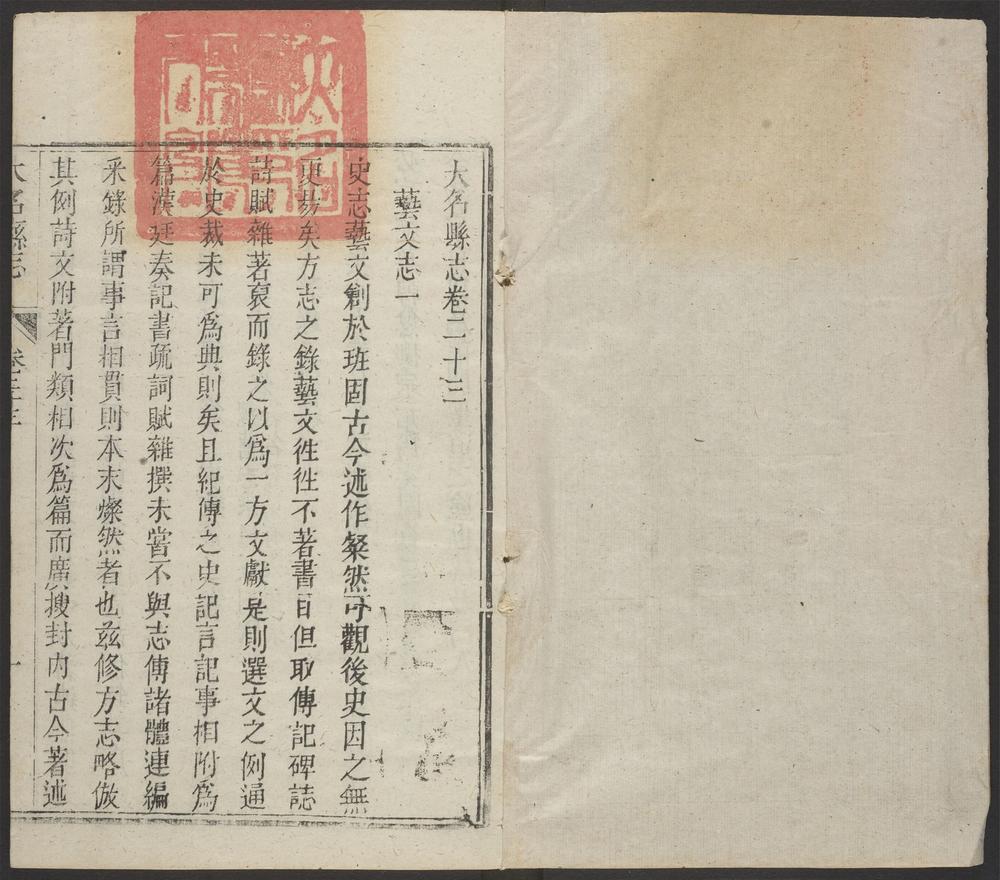 大名縣志卷二十三
藝文志一
史志藝文創於班固古今述作粲然可觀後史因之無
更易矣方志之錄藝文徃徃不著書目但取傳記碑誌
詩賦雜著裒而錄之以爲一方文獻是則選文之例通
於史裁未可爲典則矣且紀傳之史記言記事相附爲
篇漢廷奏記書疏詞賦雜撰未嘗不與志傳諸體連編
釆錄所謂事言相貫則本末燦然者也兹修方志略倣
其例詩文附著門類相次爲篇而廣搜封内古今著述
大名縣志
卷二十三
一